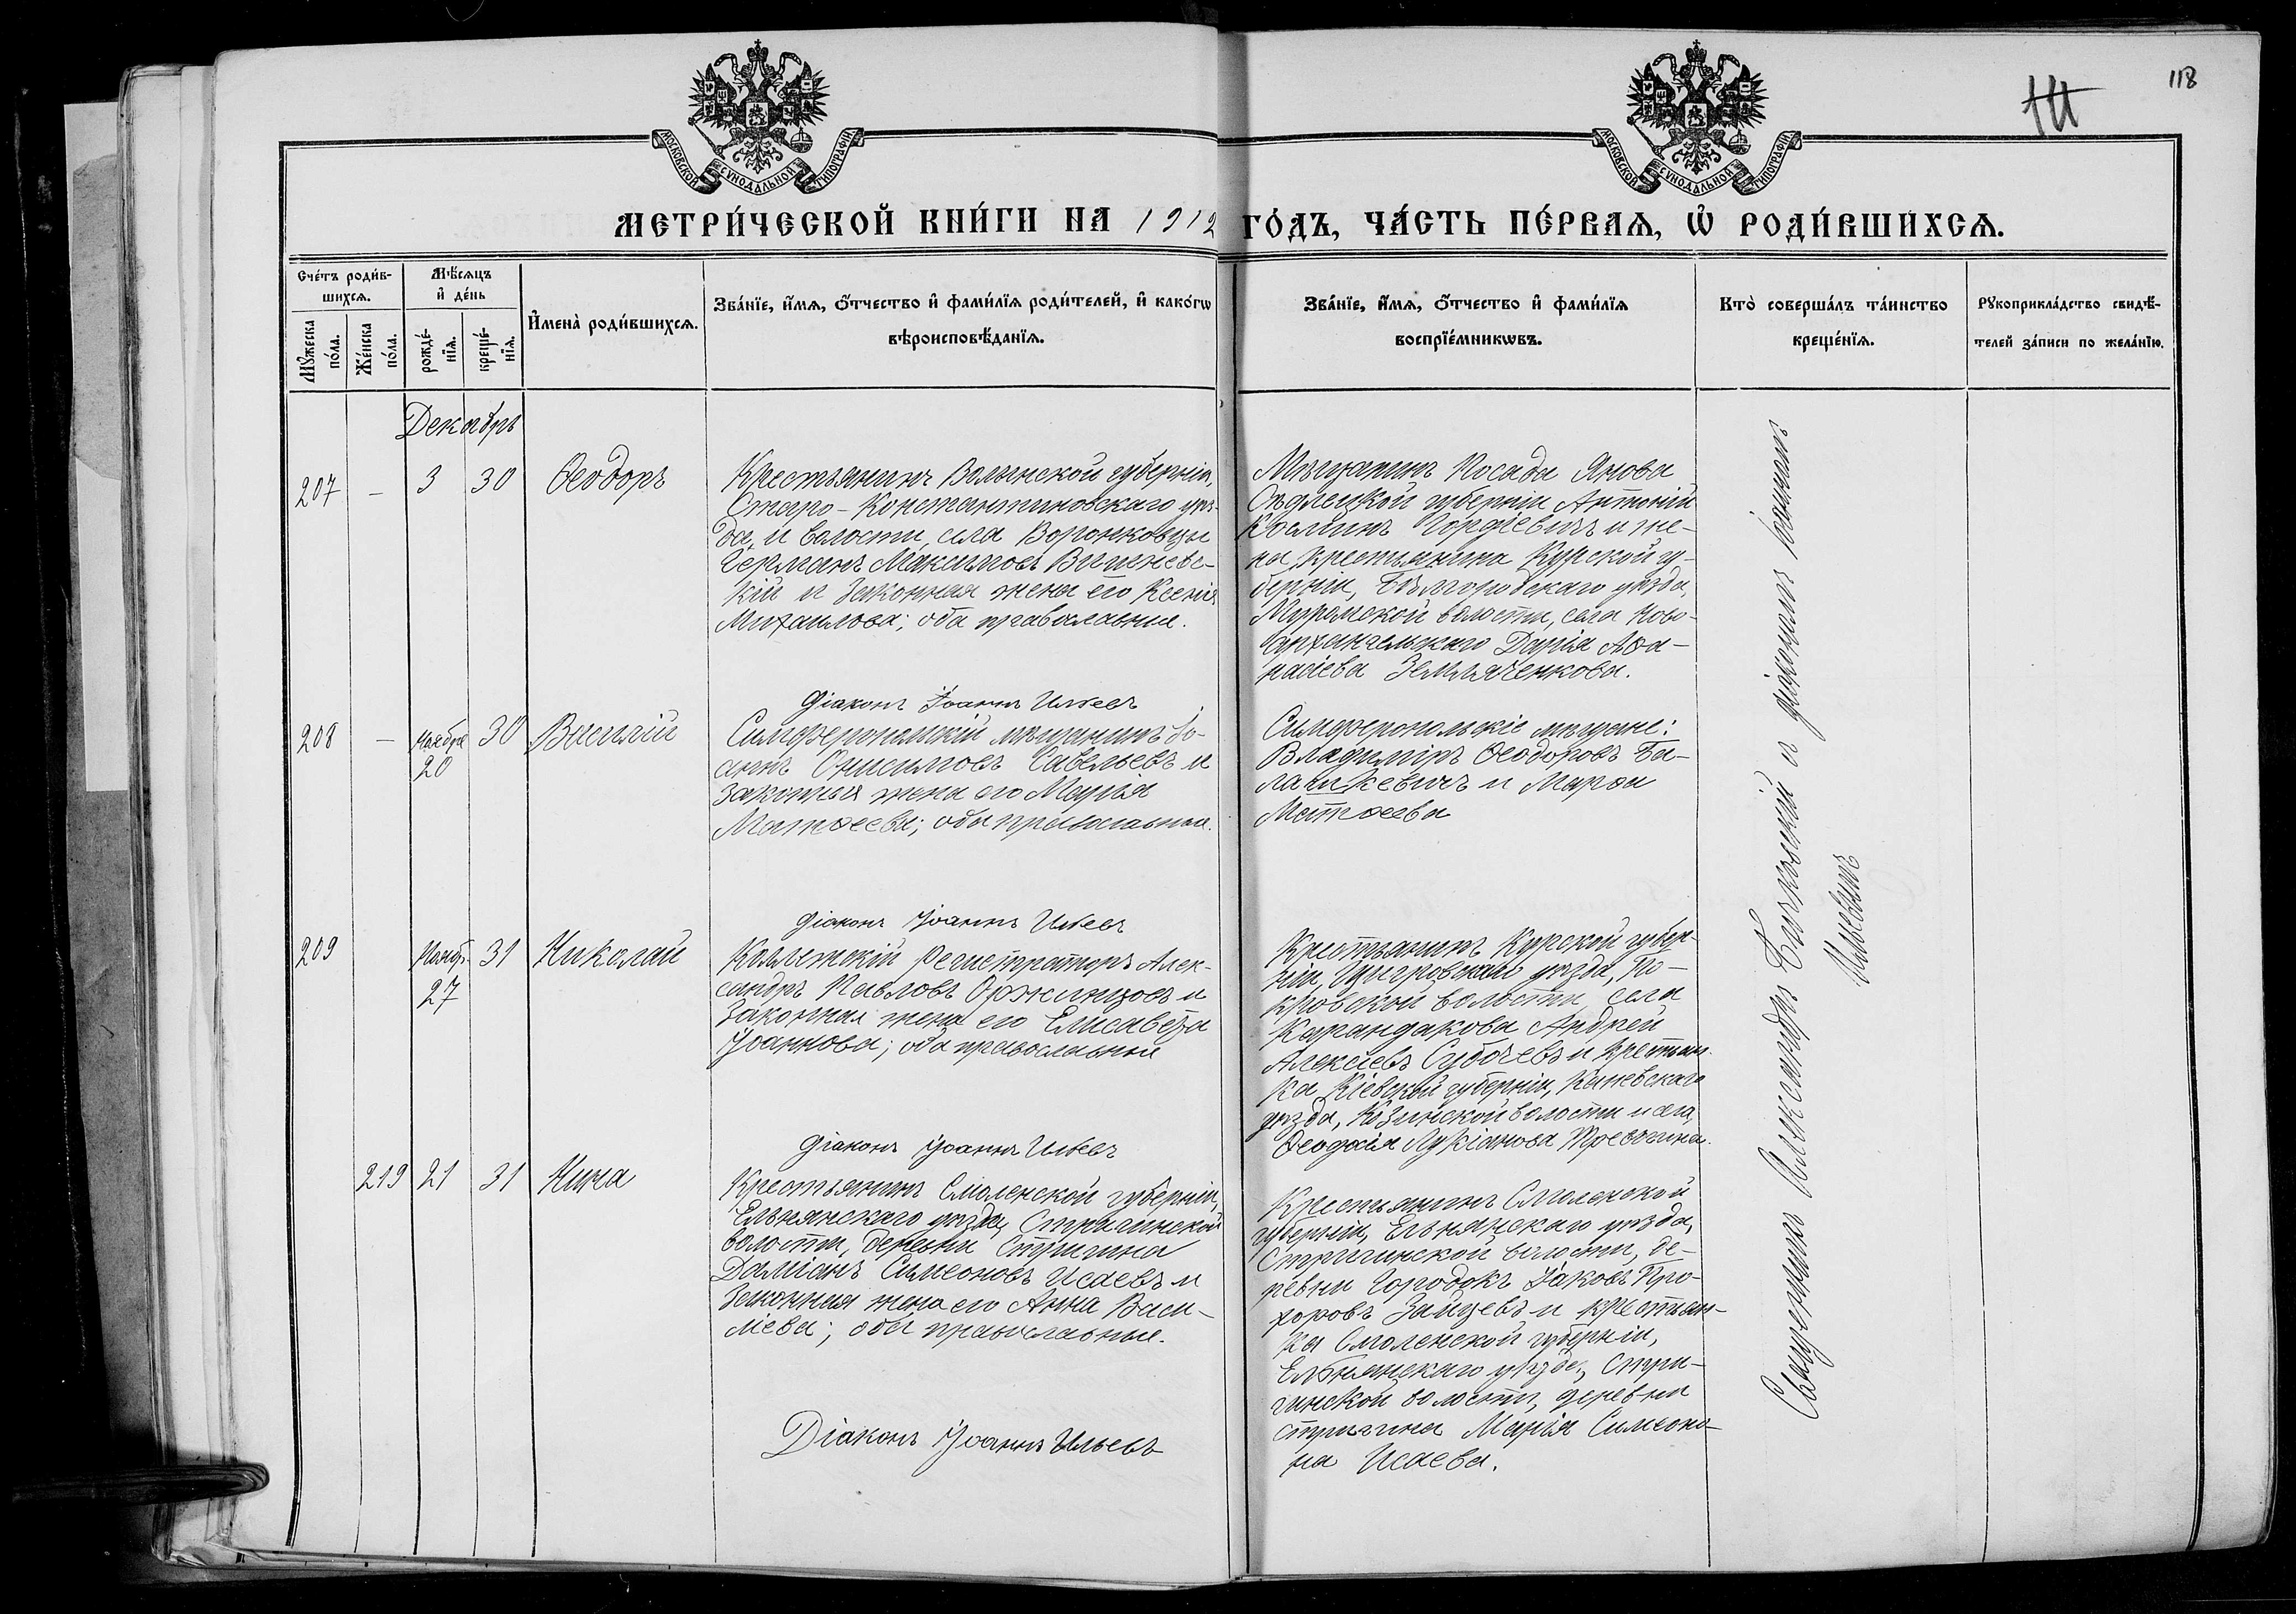 118
МОСКОВСКОЙ СУНОДАЛЬНОЙ ТИПОГРАФІИ
МОСКОВСКОЙ СУНОДАЛЬНОЙ ТИПОГРАФІИ
МЕТРИ́ЧЕСКОЙ КНИ́ГИ НА 1912 ГО́ДЪ, ЧА́СТЬ ПЕ́РВАѦ, Ѡ҆ РОДИ́ВШИХСѦ.
Сче́тъ роди́в-
шихсѧ.
Мꙋ́жеска по́ла.
Же́нска по́ла.
Мѣ́сѧцъ
и҆ де́нь
рожде́-
нїѧ.
креще́-
нїѧ.
И҆мена̀ роди́вшихсѧ.
Зва́нїе, и҆́мѧ, ѻ҆́тчество и҆ фами́лїѧ роди́телей, и҆ како́гѡ
вѣроисповѣ́данїѧ.
Зва́нїе, и҆́мѧ, ѻ҆́тчество и҆ фами́лїѧ
воспрїе́мникѡвъ.
Кто̀ соверша́лъ та́инство
креще́нїѧ.
Рꙋкоприкла́дство свидѣ́-
телей за́писи по жела́нїю.
Декабрь
207 – 3 30 Ѳеодоръ
Крестьянинъ Волынской губерніи,
Старо-Константиновскаго уѣз-
да, и волости, села Воронковцы
Германъ Максимовъ Вишневс-
кій и законная жена его Ксенія
Михаилова; оба православные.
Мѣщанинъ Посада Янова
Сѣдлецкой губерніи Антоній
Гордіевичъ и же-
на крестьянина Курской гу-
берніи, Бѣлгородскаго уѣзда,
Муромской волости, села Ново-
Архангельскаго Дарія Аѳа-
насіева Землаченкова.
Діаконъ Іоаннъ Ильевъ
208 – Ноября 20 30 Василій
Симферопольскій мѣщанинъ Іо-
аннъ Онисимовъ Савельевъ и
законная жена его Марія
Матѳеева; оба православные.
Симферопольскіе мѣщане:
Владиміръ Ѳеодоровъ Ба-
лашкевичъ и Марѳа
Матѳеева
Діаконъ Іоаннъ Ильевъ
209 Ноябр. 27 31 Николай
Коллежскій регистраторъ Алек-
сандръ Павловъ Оржинцовъ и
законная жена его Елисавета
Іоаннова; оба православные
Крестьянинъ Курской губер-
ніи, Щигровскаго уѣзда, По-
кровской волости села
Карандакова Андрей
Алексіевъ Субочевъ и крестьян-
ка Кіевской губерніи, Каневскаго
уѣзда, Козинской волости и села,
Ѳеодосія Лукіанова
Діаконъ Іоаннъ Ильевъ
219 21 31 Нина
Крестьянинъ Смоленской губерніи,
Ельнянскаго уѣзда, Стригинской
волости, деревни Стригина
Даміанъ Симеоновъ Исаевъ и
законная жена его Анна Васи-
ліева; оба православные.
Крестьянинъ Смоленской
губерніи, Ельнянскаго уѣзда,
Стригинской волости, де-
ревни Городокъ Іаковъ Про-
хоровъ Зайцевъ и крестьян-
ка Смоленской губерніи,
Ельнянскаго уѣзда, Стри-
гинской волости, деревни
Стригина Марія Симеоно-
ва Исаева.
Діаконъ Іоаннъ Ильевъ
Священникъ Александръ и діаконъ Іоаннъ
Ильевъ